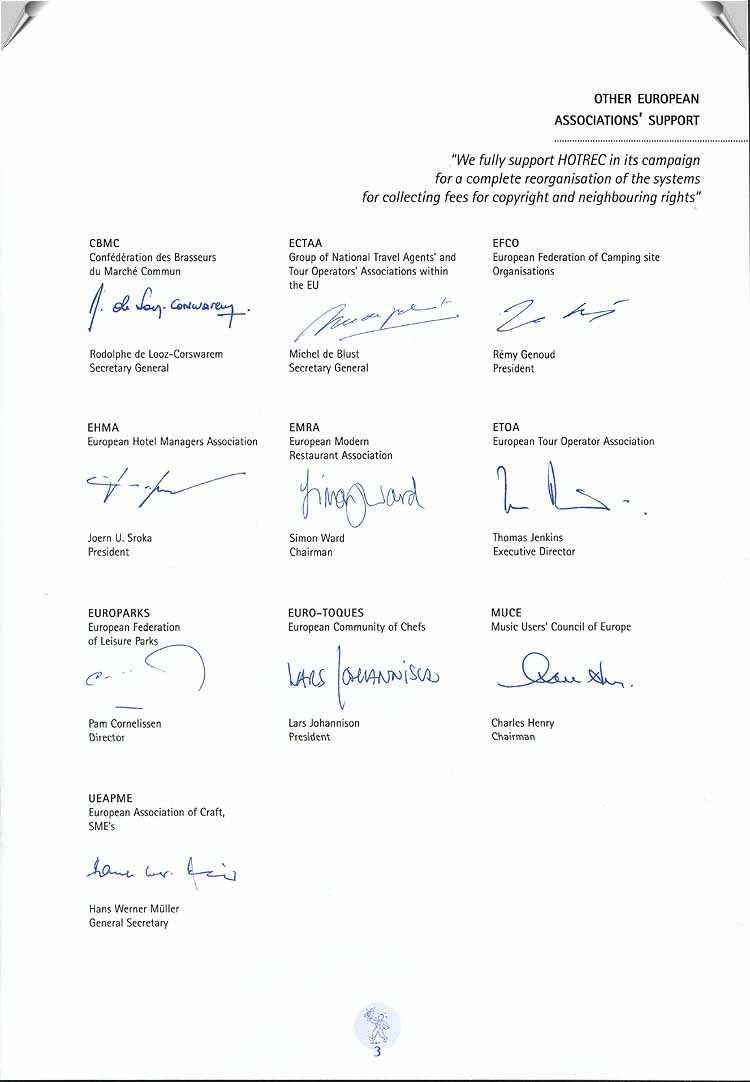 OTHER EUROPEAN
ASSOCIATIONS' SUPPORT
"We fully support HOTREC in its campaign
for a complete reorganisation of the systems
for collecting fees for copyright and neighbouring rights"
CBMC
Confédération des Brasseurs
du Marché Commun
Rodolphe de Looz-Corswarem
Secretary General
ECTAA
Group of National Travel Agents' and
Tour Operators' Associations within
the EU
Michel de Blust
Secretary General
EFCO
European Federation of Camping site
Organisations
Rémy Genoud
President
EHMA
European Hotel Managers Association
Joern U. Sroka
President
EMRA
European Modern
Restaurant Association
Simon Ward
Simon Ward
Chairman
ETOA
European Tour Operator Association
Thomas Jenkins
Executive Director
EUROPARKS
European Federation
of Leisure Parks
Pam Cornelissen
Director
EURO-TOQUES
European Community of Chefs
LARS JOHANNISON
Lars Johannison
President
MUCE
Music Users' Council of Europe
Charles Henry
Chairman
UEAPME
European Association of Craft,
SME's
Hans Werner Müller
General Secretary
3